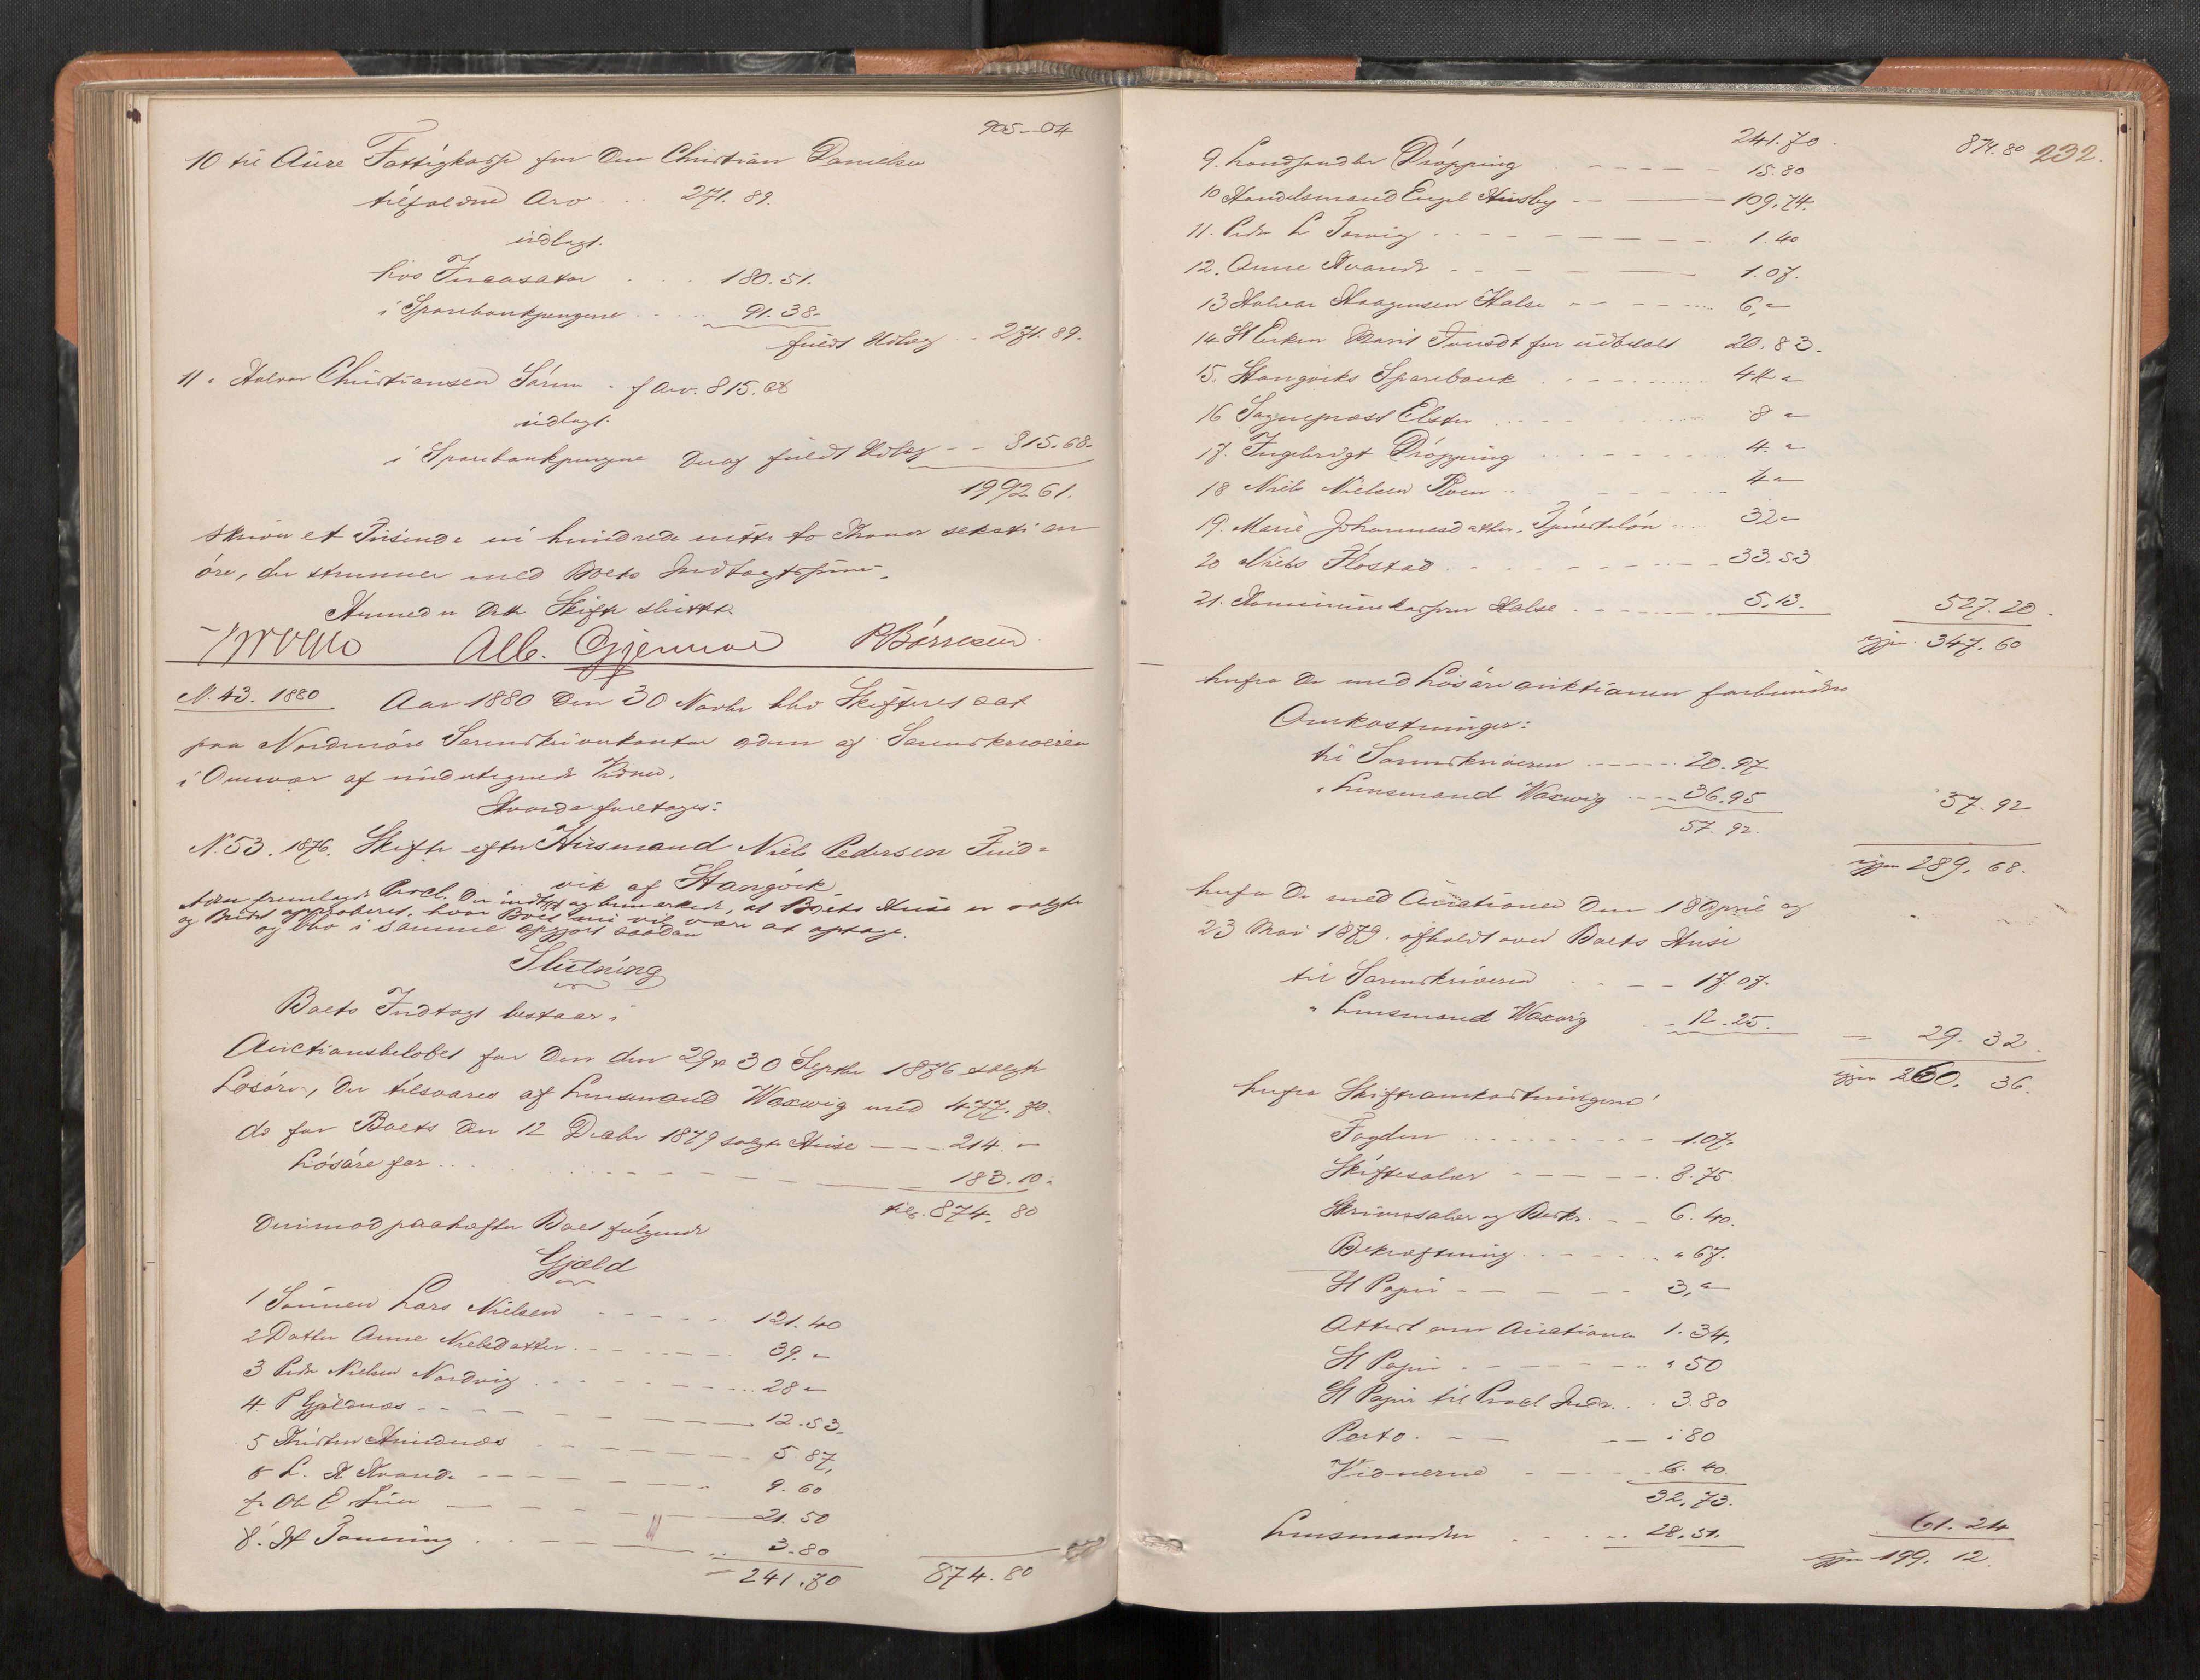 905-04
10 til Aure Fattigkasse for den Christian Danielsen
tilfaldne Arv . . . 271. 89.
udlagt.
hos Incassator . . . 180. 51.
i Sparebankpengene . . . . 91. 38.
fuldt Udlæg . . 271. 89.
11. Halvor Christiansen Sórum f Arv. 815. 68
udlagt.
i Sparebankpengene deraf fuldt Udlæg - - 815. 68.
1992 61.
skriver et Tusinde ni hundrede nitti to Kroner seksti en
óre, der stemmer med Boets Indtægtssum.
Hermed er dette Skifte sluttet.
Alb. Gjennæs P Bórresen
N. 43. 1880 Aar 1880 den 30 Novbr blev Skifteret sat
paa Nordmóre Sorenskriverkontor adm af Sorenskriveren
i Overvær af undertegnede Vidner.
Hvorda foretoges:
N. 53. 1876. Skifte efter Husmand Niels Pedersen Tvid=
vik af Stangvik
fremlagde Procl. der indtages og bemærkede, at Boets Huse er solgte
og Budet approberet, hvor Boet nu vil være at optage.
og blev i samme opgjort saadan
Slutning
Boets Indtægt bestaar i
Auctionsbelóbet for den den 29 & 30 Septbr 1876 solgte
Lósóre, der tilsvares af Lensmand Waxwig med 477. 70.
do for Boets den 12 Decbr 1879 solgte Huse - - - 214. "
Lósóre for . . . 183. 10.
tils. 874. 80
Derimod paahefter Boet fólgende
Gjæld
1 Sónnen Lars Nielsen - - - - 121. 40
2 Datter Anne Nielsdatter. - - - - 39. "
3 Peder Nielsen Nordvig . - - - - 28 "
4. P Gjeldnæs - - - - 12. 53.
5 - - - - 5. 87,
6 L. H Kvande - - - - 9. 60
7. Ole E Lien - - - - 21. 50
8. H Tønning . - - - - 3. 80
241. 70 874. 80
241. 70. 874. 80 232.
9. Landhandler Drópping - - - - 15. 80
10 Handelsmand Engel Husby - - - - 109. 74.
11. Peder L Torvig . - - - - 1. 40
12. Anne Kvande - - - - 1. 07.
13 Halvor Haagensen Halse - - - - 6, "
14. St Enken Marit Tvusdt for udbetalt 20. 83.
15. Stangviks Sparebank . - - - - 44 "
16 Sognepræst Elster . . . . 8 "
17. Ingebrigt Drópping - - - - 4. "
18 Niels Nielsen Roen - - - - 4 "
19. Marie Johannesdatter - - 32 "
20 Niels Flóstad. - - - - 33. 53
21. Kommunekassen Halse . - - - - 5. 13. 527. 20.
igjen. 347. 60
herfra de med Lósóre auktionen forbundne
Omkostninger:
til Sorenskriveren - - - - 20. 97
" Lensmand Waxwig - - - - 36. 95 57. 92
57. 92.
igjen 289, 68.
herfra de med Auctionen den 18 April og
23 Mai 1879. afholdt over Boets Huse
til Sorenskriveren . . - - 17. 07.
" Lensmand Waxwig . . 12. 25. 29. 32.
igjen 260. 36.
herfra Skifteomkostningerne
Fogden . . . . . - - - - 1.07.
Skiftesalær - - - - - 8. 75.
Skriversalær og Beskr. - - 6. 40.
Bekræftning . - - - - " 67.
St Papir - - - - - 3, "
Attest om Auctionen 1. 34.
St Papir . - - - - " 50
St Papir til Procl Indr. . . 3. 80
Porto. - - - - " 80
Vidnerne - - - - 6. 40.
32. 73.
Lensmanden . . . . . 28. 51. 61. 24
igjen 199. 12.